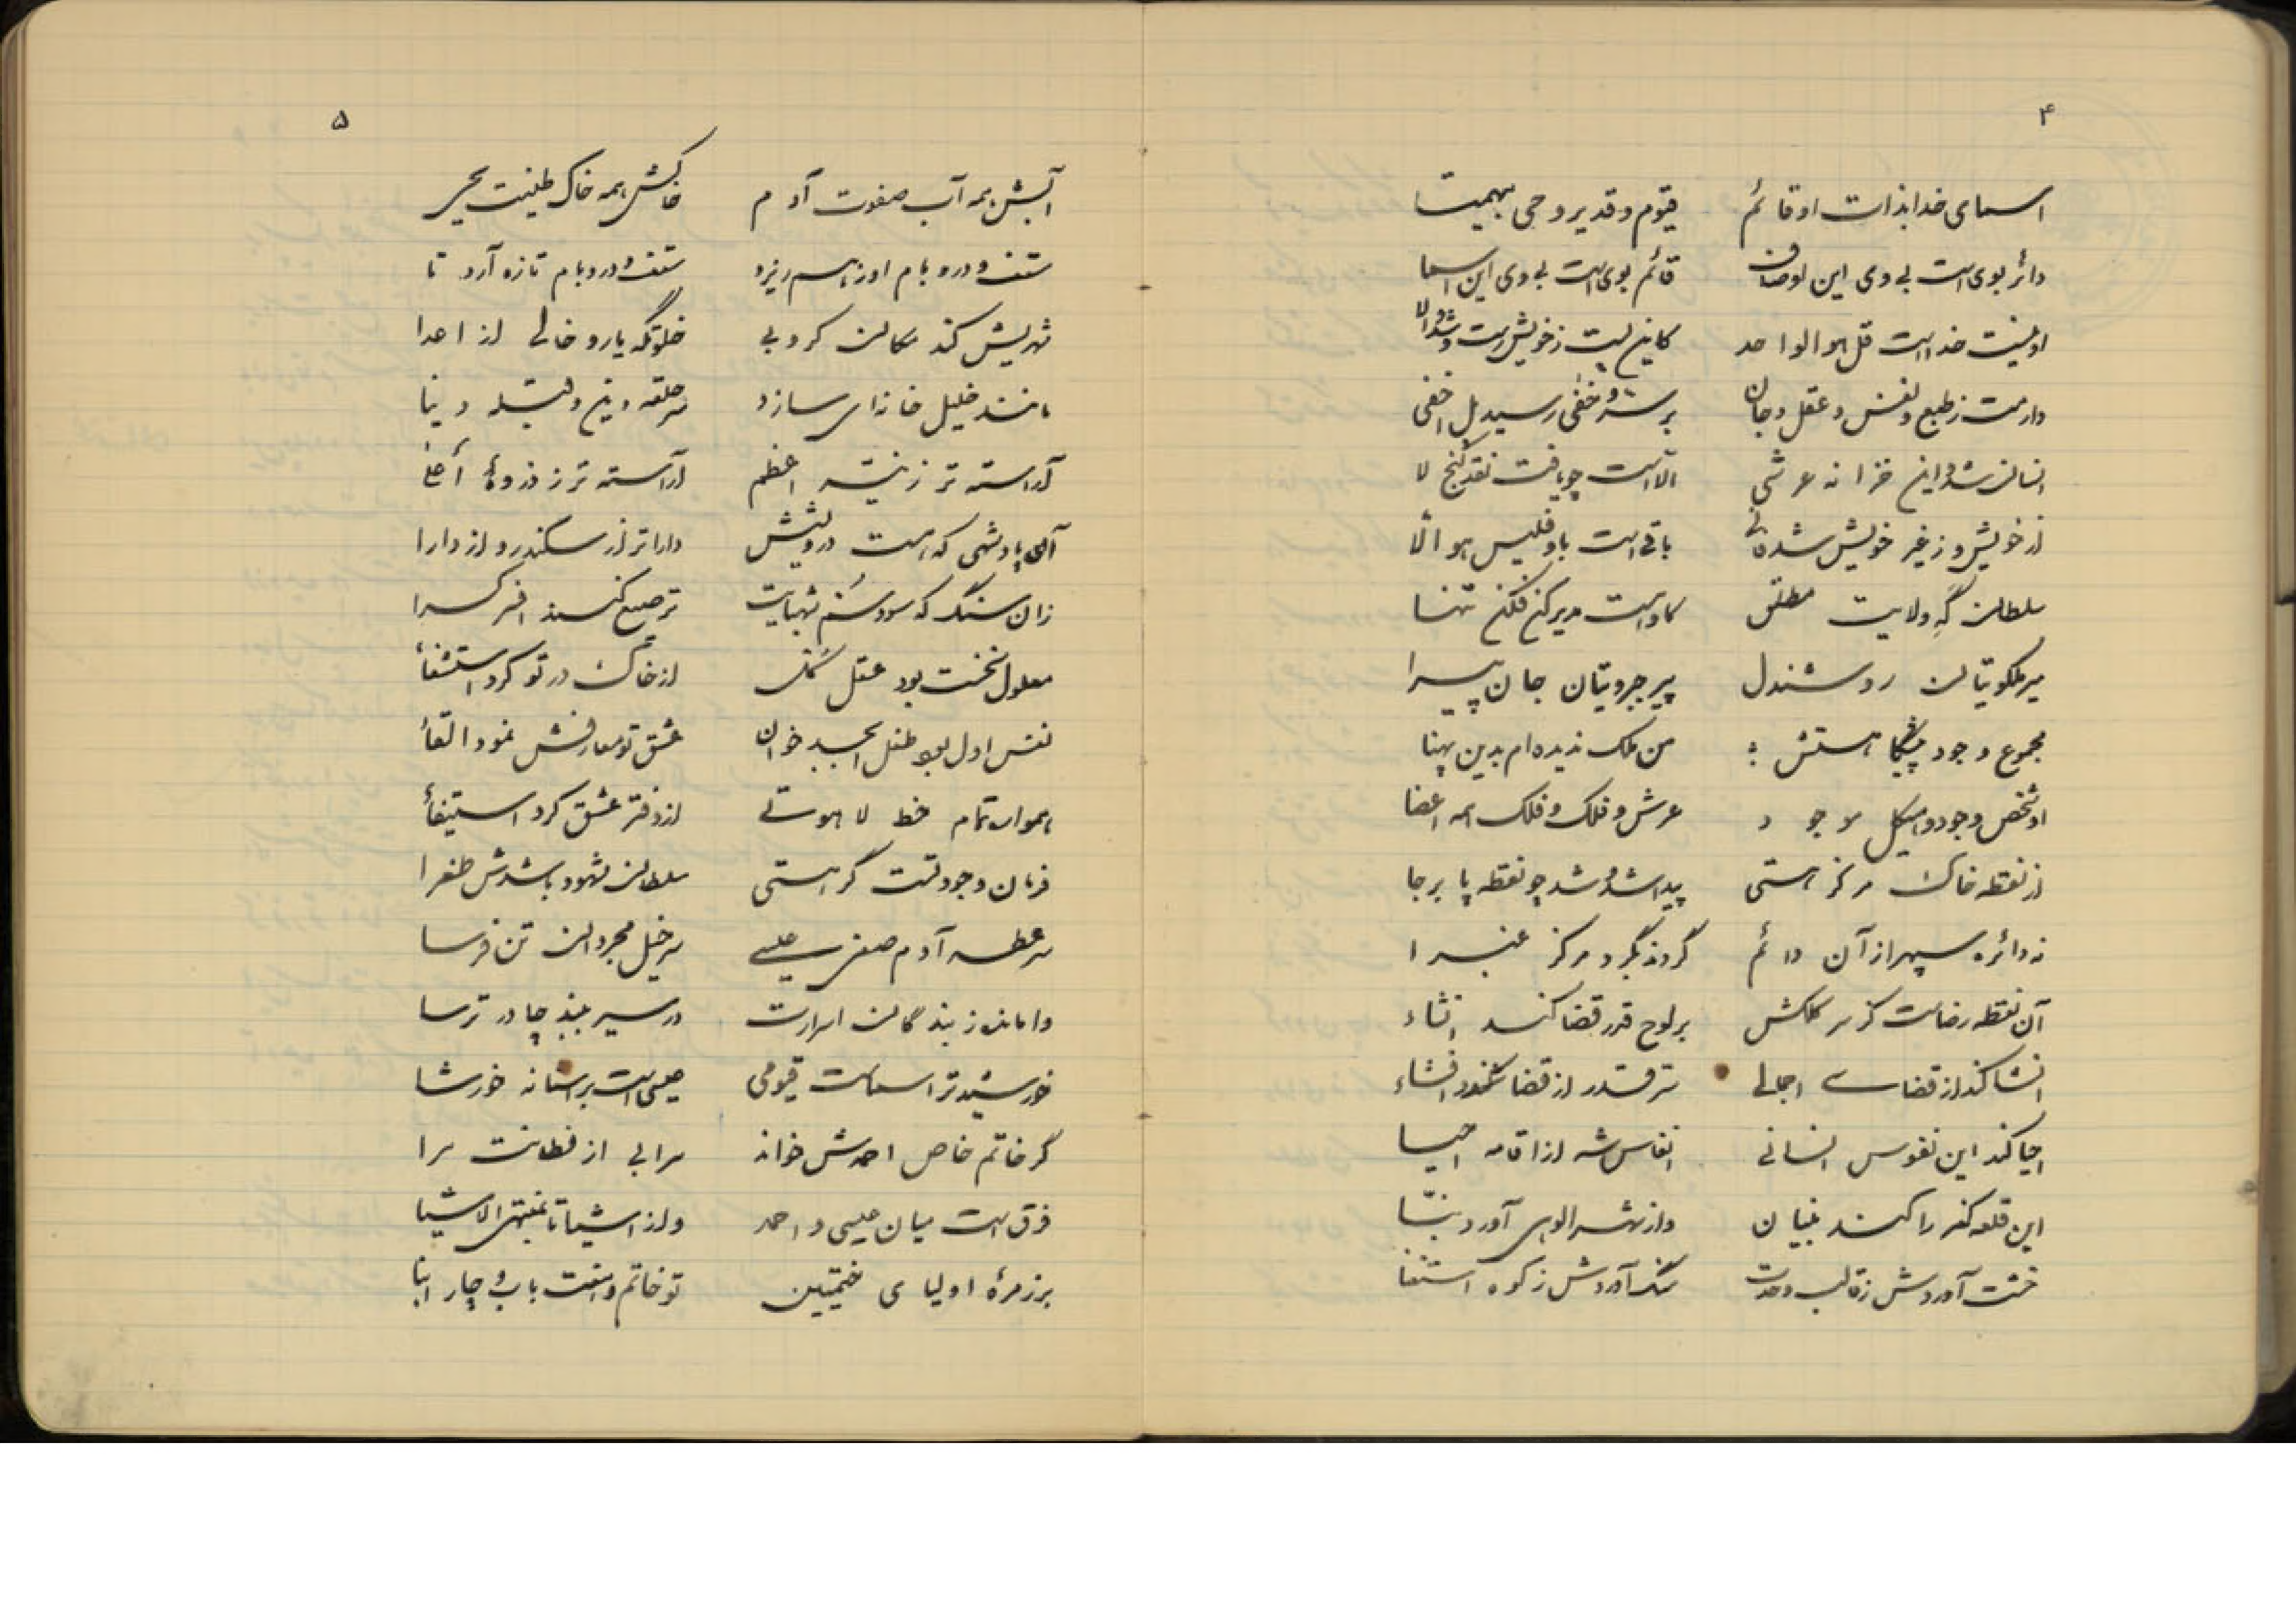 ۴
اسمای خدا بذات او قائم قیوم و قدیر و حی بیهمتا
دائر بوی است بی وی این اوصاف قائم بوی است بی وی این اسما
اوئیت خداست قل هو الواحد کاینیت ز خویش رست و شد الا
وارست ز طبع و نفس و عقل و جان بر سر و خفی رسید بل اخفی
انسان شد و این خزانه عرشی الا است چو یافت نقد گنج لا
از خویش و ز غیر خویش شد فانی باقی است باو فلیس هو الا
سلطان گه ولایت مطلق کاوست مدیر کن فکن تنها
میر ملکوتیان روشندل پیر جبروتیان جان پیرا
مجموع وجود پیشگاهستش من ملک ندیده ام بدین پهنا
او شخص وجود و هیکل موجود عرش و فلک و فلک همه اعضا
از نقطه خاک مرکز هستی پیدا شد و شد چو نقطه پا برجا
نه دائره سپهر از آن دائم گردند بگرد مرکز غبرا
آن نقطه رضاست کز سر کلکش بر لوح قدر قضا کند انشاء
انشا کند از قضای اجمالی سر قدر از قضا کند افشاء
احیا کند این نفوس انسانی انفاس شه از اقامه احیا
این قلعه کفر را کند بنیان واز شهر الوهی آورد بنا
خشت آوردش ز قالب وحدت سنگ آوردش ز کوه استغنا
۵
آبش همه آب صفوت آدم خاکش همه خاک طینت یحیی
سقف و در و بام او ز هم ریزد سقف و در و بام تازه آرد تا
شهریش کند مکان کروبی خلوتگه یار و خالی از اعدا
مانند خلیل خانه ای سازد سر حلقه دین و قبله دنیا
آراسته تر ز نیر اعظم آراسته تر ز ذروهٔ اعلا
آن پادشهی که هست درویشش داراتر از سکندر و از دارا
زان سنگ که سود سم شهبایت ترصیع کنند افسر کسرا
معلول نخست بود عقل کل از خاک در تو کرد استشفأ
نفس اول بود طفل ابجد خوان عشق تو معارفش نمود القأ
هموار تمام خط لاهوتی از دفتر عشق کرد استیفأ
فرمان وجود تست گر هستی سلطان شهود باشدش طغرا
سر عطسه آدم صفی عیسی سر خیل مجردان تن فرسا
وامانده ز بندگان اسرارت در سیر ببند چادر ترسا
خورشید تر اسماست قیومی عیسی است بر آستانه خورشا
گر خاتم خاص احمدش خواند مرابی از فطانت مرا
فرق است میان عیسی و احمد واز اشیا تا بمنتهی الاشیا
بر زمرهٔ اولیای ختمیین تو خاتم و هفت باب و چار ابنا